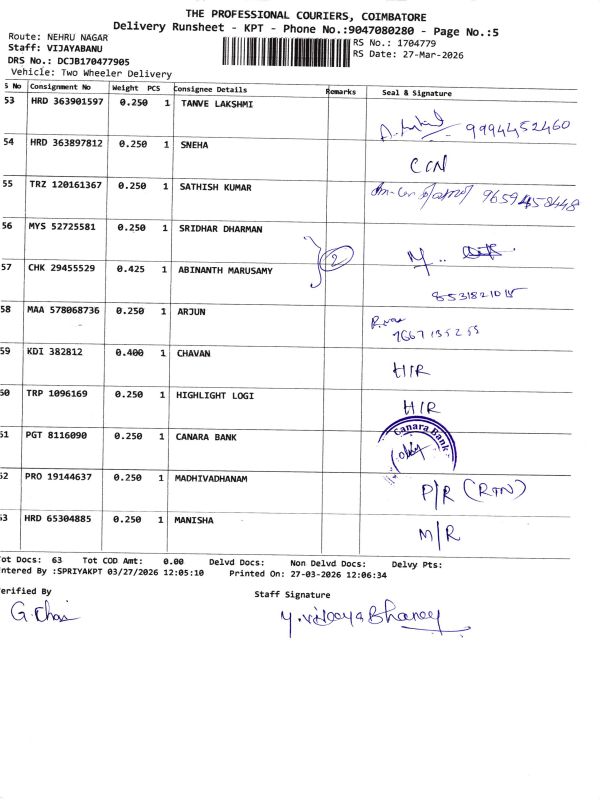 THE PROFESSIONAL COURIERS, COIMBATORE
Delivery Runsheet - KPT - Phone No.:9047080280 - Page No.:5
Route: NEHRU NAGAR
RS No.: 1704779
Staff: VIJAYABANU
RS Date: 27-Mar-2026
DRS No.: DCJB170477905
Vehicle: Two Wheeler Delivery
S No Consignment No Weight PCS Consignee Details Remarks Seal & Signature
53 HRD 363901597 0.250 1 TANVE LAKSHMI
9994452460
54 HRD 363897812 0.250 1 SNEHA
CCN
55 TRZ 120161367 0.250 1 SATHISH KUMAR
9659458448
56 MYS 52725581 0.250 1 SRIDHAR DHARMAN
2
57 CHK 29455529 0.425 1 ABINANTH MARUSAMY
58 MAA 578068736 0.250 1 ARJUN
59 KDI 382812 0.400 1 CHAVAN
H/R
60 TRP 1096169 0.250 1 HIGHLIGHT LOGI
H/R
61 PGT 8116090 0.250 1 CANARA BANK
Canara Bank
62 PRO 19144637 0.250 1 MADHIVADHANAM
P/R (RTN)
63 HRD 65304885 0.250 1 MANISHA
M/R
Tot Docs: 63 Tot COD Amt: 0.00 Delvd Docs: Non Delvd Docs: Delvy Pts:
Entered By :SPRIYAKPT 03/27/2026 12:05:10 Printed On: 27-03-2026 12:06:34
Verified By
Staff Signature